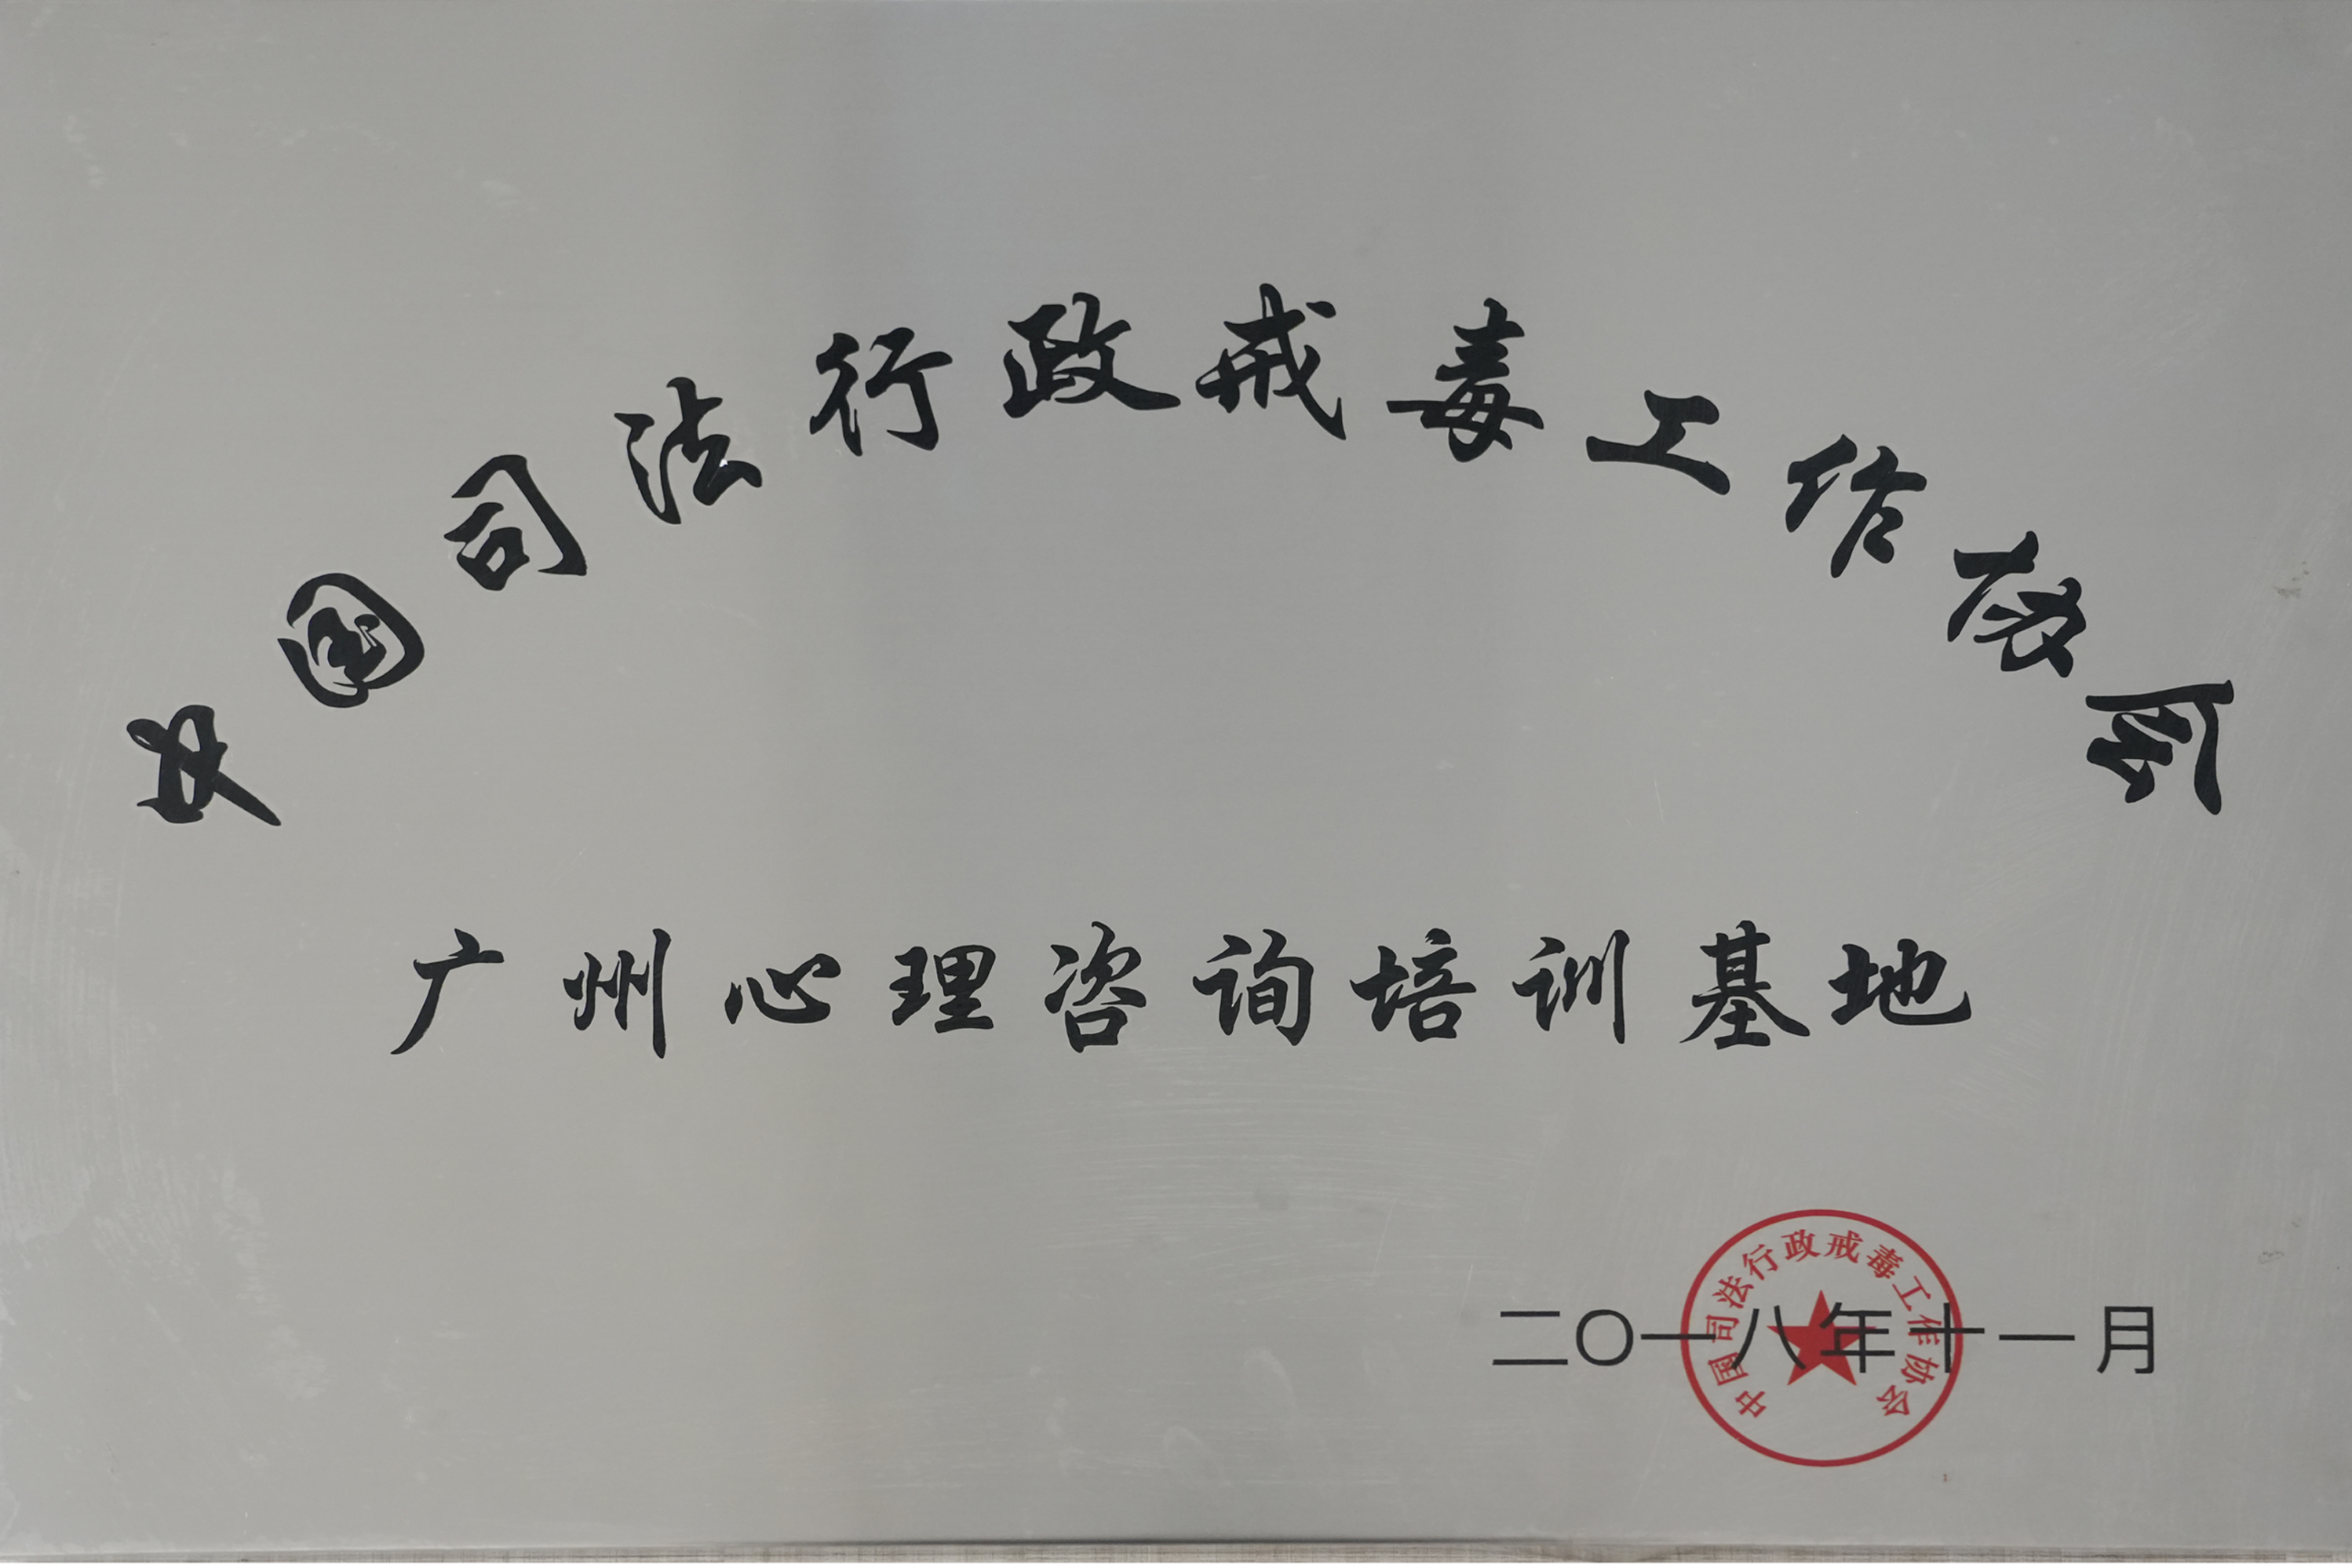 中国司法行政戒毒工作协会
广州心理咨询培训基地
二〇一八年十一月
中国司法行政戒毒工作协会